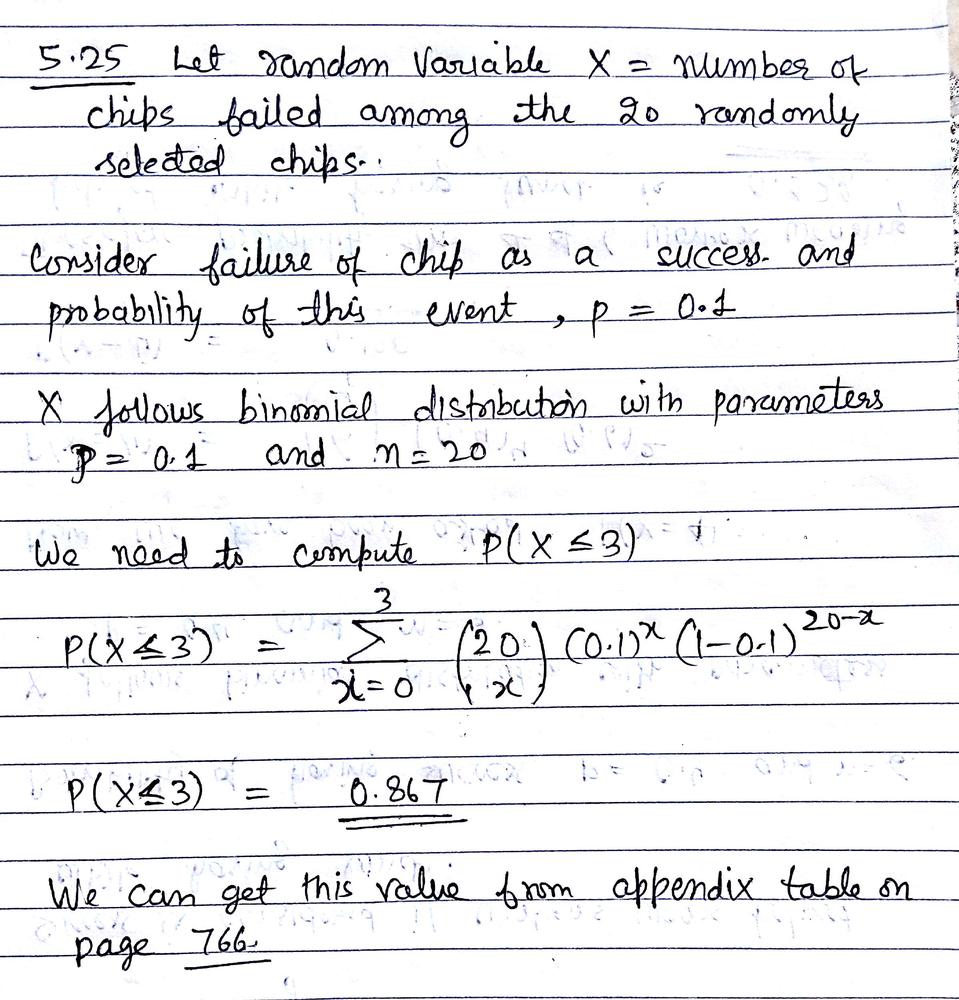 5.25 Let random Variable X = number of
chips failed among the 20 randomly
selected chips.
Consider failure of chip as a success. and
probability of this event , p = 0.1
X follows binomial distribution with parameters
p = 0.1 and n = 20
We need to compute P(X ≤ 3)
P(X ≤ 3) = ∑_{x=0}^{3} (20 x) (0.1)^x (1-0.1)^{20-x}
P(X ≤ 3) = 0.867
We can get this value from appendix table on
page 766.